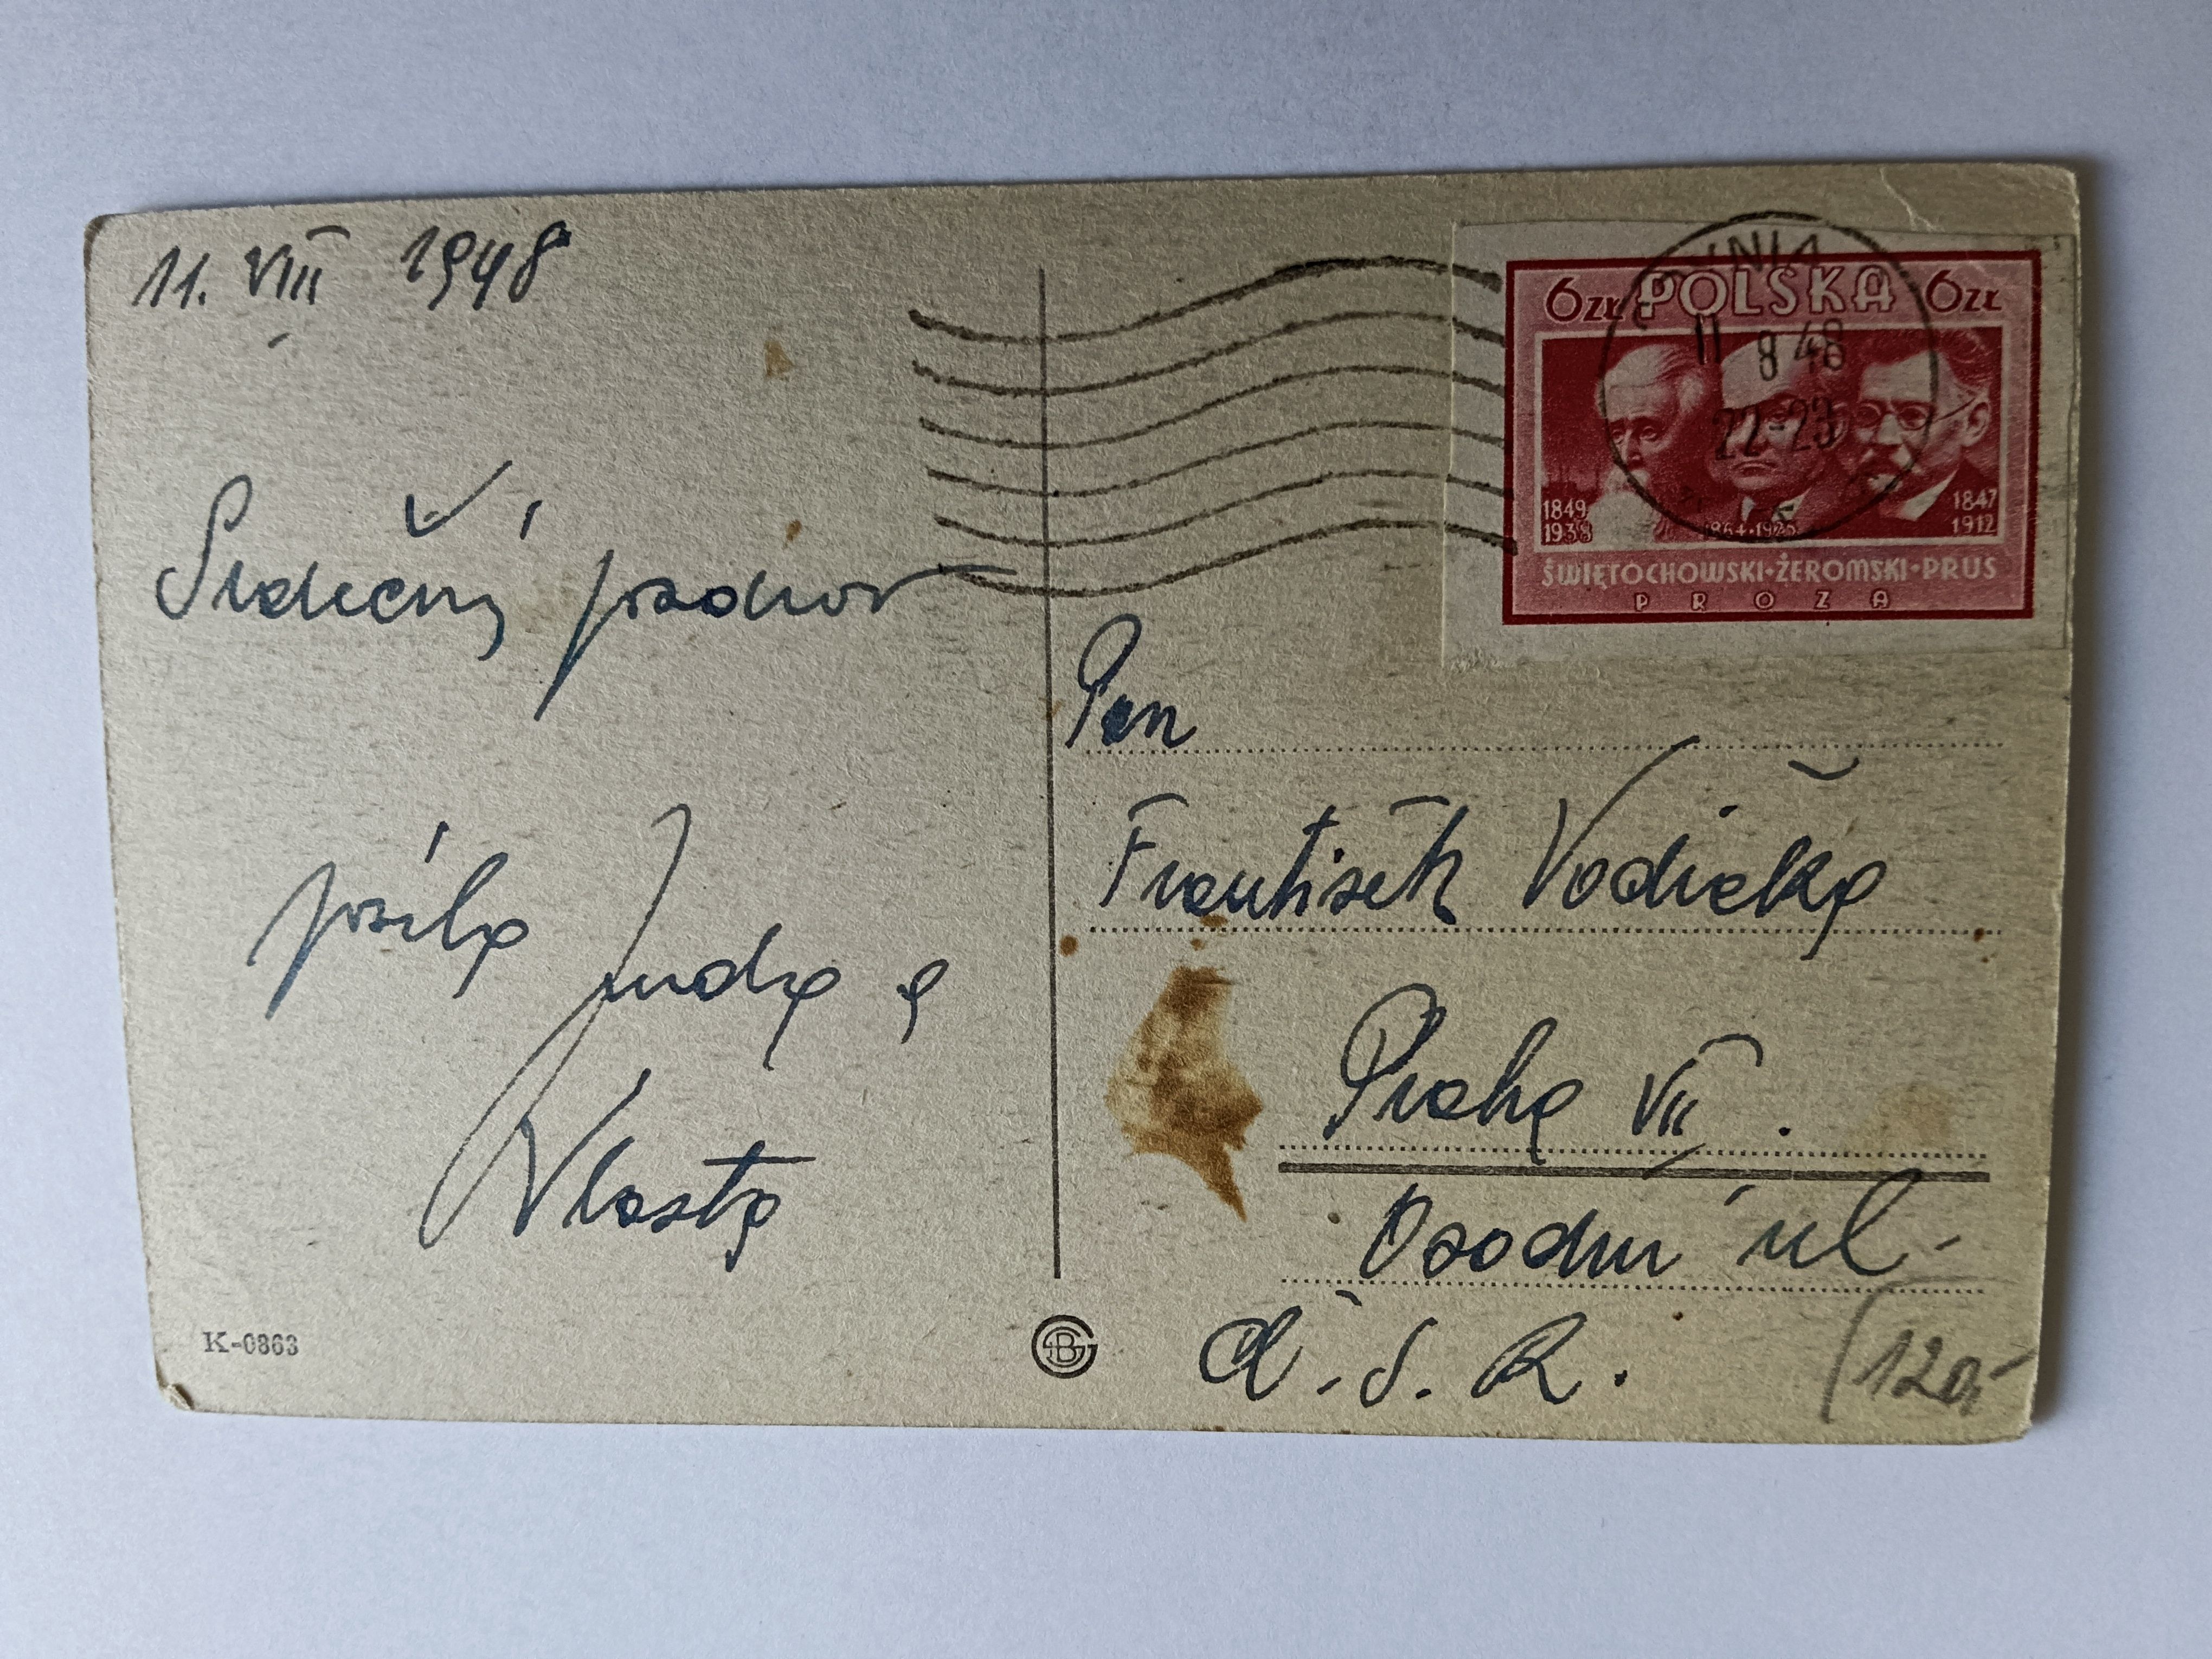 11. VIII 1948
Srdečný pozdrav
posílá Jenda a
Vlasta
K-0863
6ZŁ POLSKA 6ZŁ
11 8 48
22-23
1849
1938
1864·1925
1847
1912
ŚWIĘTOCHOWSKI·ŻEROMSKI·PRUS
PROZA
Pan
František Vodička
Praha VII.
Osadní ul.
Č.S.R.
120,-